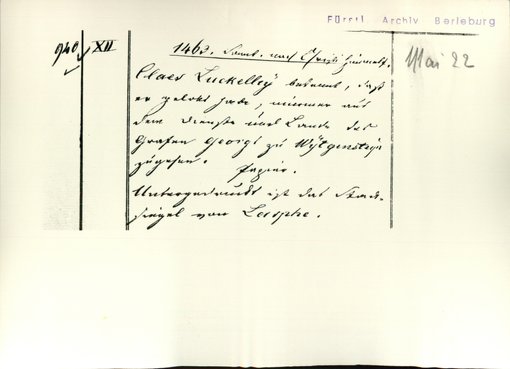 Fürstl. Archiv Berleburg
940 XII
1463. Sonnt. nach Christi Himmelf.
Mai 22
Claes Luckelley bekennt, daß
er gelobt habe, nimmer aus
dem Dienste und Lande des
Grafen Georgs zu Wytgenstein
zugehen.
Papier.
Untergedruckt ist das Stadt-
siegel von Lasphe.